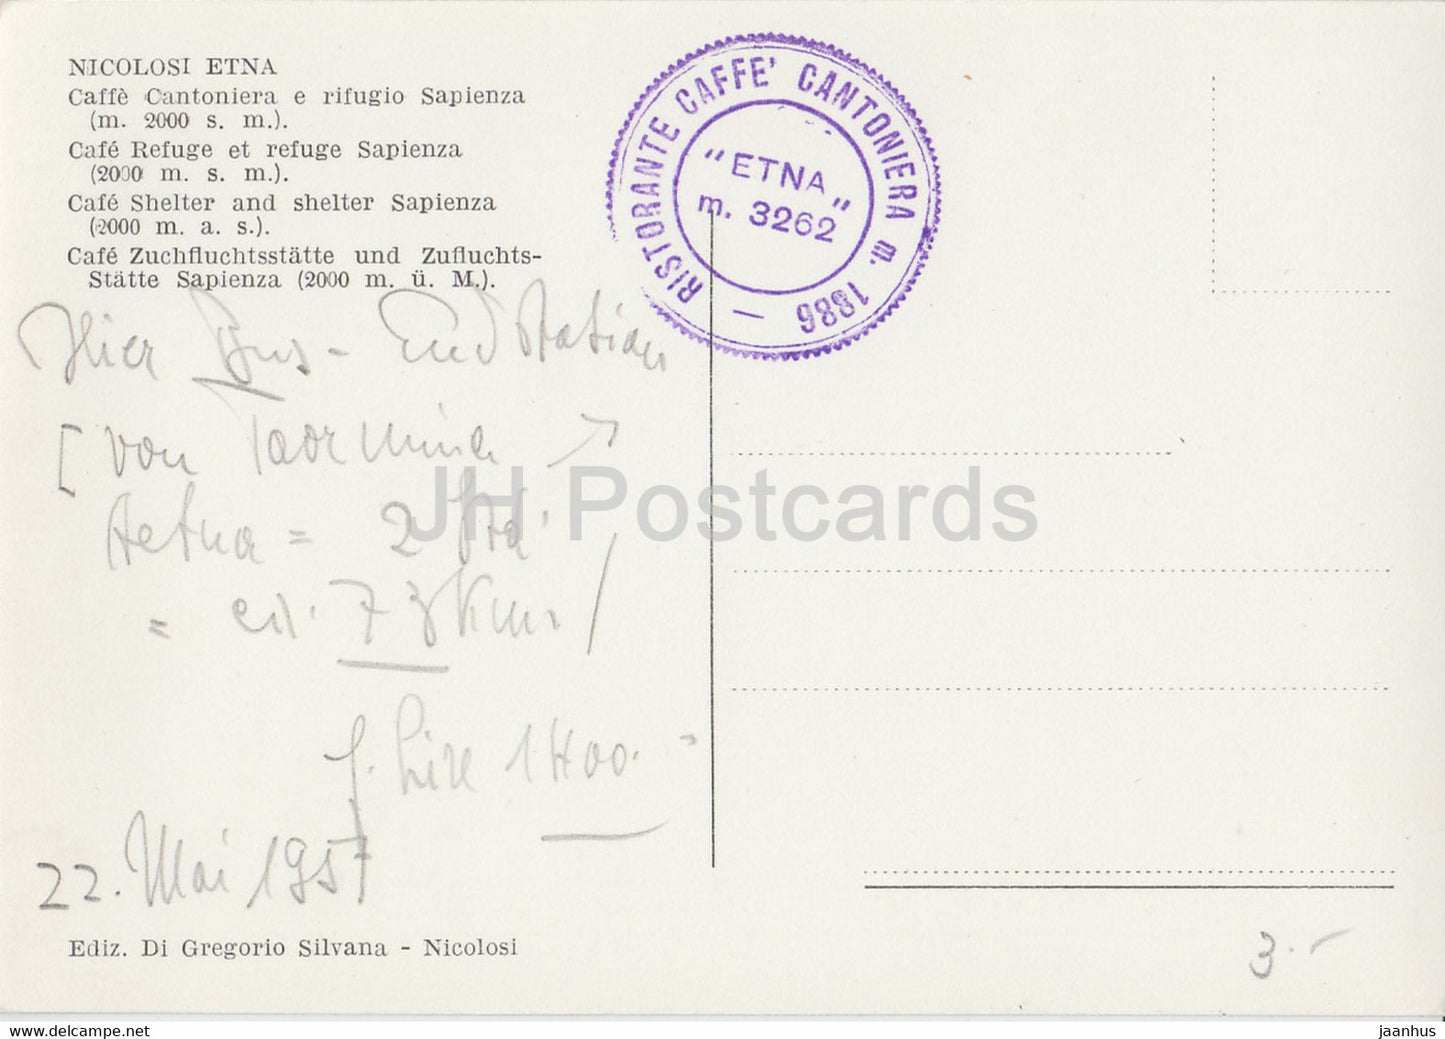 NICOLOSI ETNA
Caffè Cantoniera e rifugio Sapienza
(m. 2000 s. m.).
Café Refuge et refuge Sapienza
(2000 m. s. m.).
Café Shelter and shelter Sapienza
(2000 m. a. s.).
Café Zuchfluchtsstätte und Zufluchts-
Stätte Sapienza (2000 m. ü. M.).
RISTORANTE CAFFE' CANTONIERA m. 1886 —
"ETNA"
m. 3262
Hier Bus- Endstation
[von Taormina →
Aetna = 2 Std.
= ca. 73 Km/
Lire 1400.-
22. Mai 1957
Ediz. Di Gregorio Silvana - Nicolosi
3.-
JH Postcards
www.delcampe.net
jaanhus